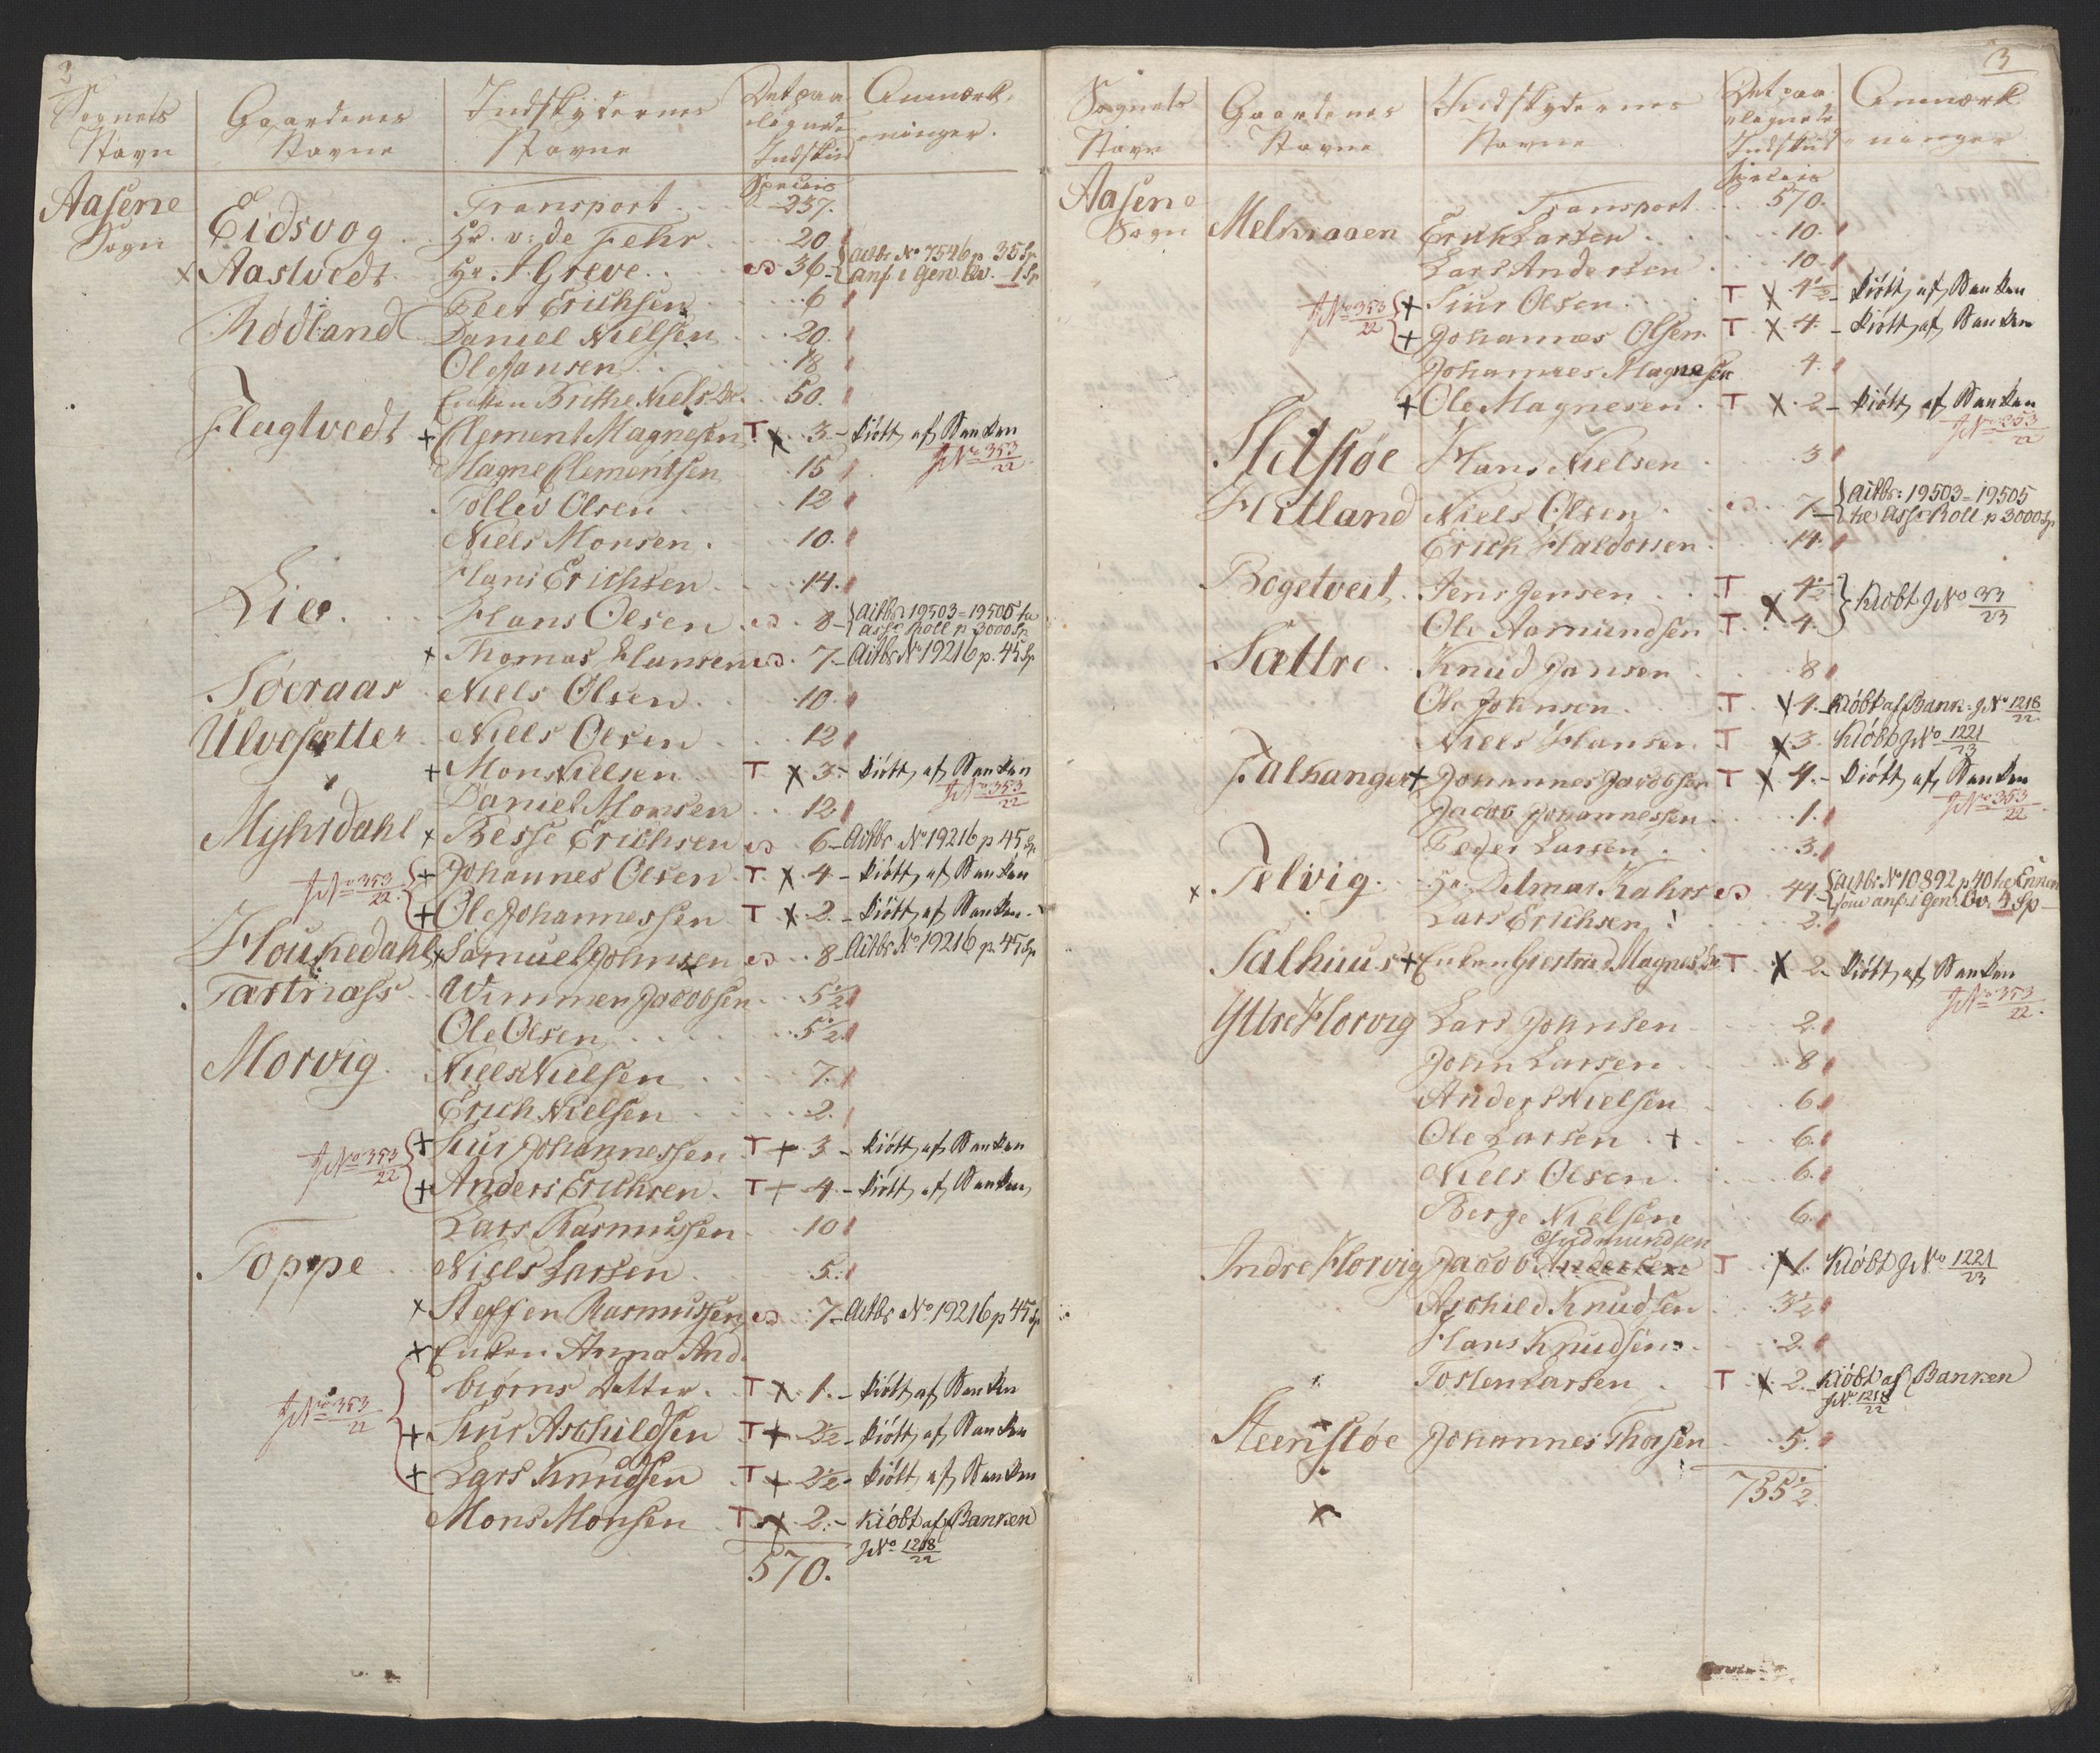 2
Sognets Navn | Gaardenes Navne | Indskydernes Navne | Det paa lagnede Indskud | Anmærkninger.
Species
Aasene Sogn | Transport | 237.
Eidsvog | Hr. v: de Fehr | 20
x Aastvedt | Hr. A Greve | 36 | Actbr No 7546 p 35 Sp anf. i Gen. Qv. 1 Sp
Peer Erichsen | 6
Rødland | Daniel Nielsen | 20.
Ole Jansen | 18
Enken Brithe Niels Dr. | 50.
Flagtvedt | + Clement Magnesen | T x 3 - kiöbt af Banken
JNo 353/22
Magne Clementsen | 15
Tollev Olsen | 12
Niels Monsen | 10.
Hans Erichsen | 14.
Lie | Hans Olsen | 8 - Actbr. 19503 = 19505 he Assc Roll p 3000 Sp
x Thomas Hansen | 7. - Actbr No 19216 p. 45 Sp
Søeraas | Niels Olsen | 10.
Ulvesetter | Niels Olsen | 12
+ Mons Nielsen | T x 3 - kiöbt af Banken
JNo 353/22
Daniel Monsen | 12
Myhrdahl | x Besse Erichsen | 6 - Actbr No 19216 p 45 Sp
JNo 353/22 + Johannes Olsen | T. x 4 - kiöbt af Banken
+ Ole Johannessen | T x 2. - kiöbt af Banken.
Houkedahl | x Samuel Johnsen | 8 - Actbr No 19216 p. 45 Sp
Tertnæss | Wimmer Jacobsen | 5 1/2
Ole Olsen | 5 1/2
Morvig | Niels Nielsen | 7.
Erich Nielsen | 2.
JNo 353/22 + Siur Johannessen | T + 3 - kiöbt af Banken
+ Anders Erichsen | T + 4 - kiöbt af Banken
Lars Rasmussen | 10
Toppe | Niels Larsen | 5.
x Steffen Rasmussen | 7 - Actbr No 19216 p 45 Sp
x Enken Anna And-
JNo 353/22 biørns Datter | T x 1. - kiöbt af Banken
+ Siur Aschildsen | T + 2 1/2 - kiöbt af Banken
+ Lars Knudsen | T + 2 1/2 - kiöbt af Banken
Mons Monsen | T x 2. - kiöbt af Banken
JNo 1218/22
570.
3
Sognets Navn | Gaardenes Navne | Indskydernes Navne | Det paa lagnede Indskud | Anmærkninger
Species
Aasene Sogn | Transport | 570.
Melkraaen | Erich Larsen | 10.
Lars Andersen | 10
JNo 353/22 + Siur Olsen | T x 4 1/2 - kiöbt af Banken
+ Johannes Olsen | T x 4. - kiöbt af Banken
Johannes Magnesen | 4.
+ Ole Magnesen | T x 2 - kiöbt af Banken
JNo 353/22
Sletstøe | Hans Nielsen | 3
Hetland | Niels Olsen | 7. - Actbr: 19503 = 19505 he Assc Roll p 3000 Sp
Erich Haldorsen | 14.
Bogetveit | Jens Jensen | T 4 1/2
Ole Aamundsen | T. x 4. | Kiøbt JNo 33/23
Sættre | Knud Jansen | 8
Ole Johnsen | T. x 4. - Kiøbt af Bank. JNo 1218/22
Niels Hansen | T x 3. Kiøbt JNo 1221/23
Falkanger | + Johannes Jacobsen | T x 4. - kiöbt af Banken
JNo 353/22
Jacob Johannessen | 1.
Peder Larsen | 3.
x Telvig | Hr. Delmar Kahrs | 44 - Actbr No 10892 p 40 anf. i Gen. Qv. 4 Sp
Lars Erichsen | 2.
Salhuus | + Enken Giertrud Magnes Dr | T x 2 - kiöbt af Banken
JNo 353/22.
Yttre Horvig | Lars Johnsen | 2.
John Larsen | 8
Anders Nielsen | 6.
Ole Larsen + | 6.
Niels Olsen | 6.
Berge Nielsen | 6.
Sydmundsen
Indre Horvig | Jacob Andersen | T x 1. Kiøbt JNo 1221/23
Aschild Knudsen | 3 1/2
Hans Knudsen | 2.
Tosten Larsen | T x 2. Kiøbt af Banken
JNo 1218/22
Steenstøe | Johannes Thorsen | 5.
755 1/2.